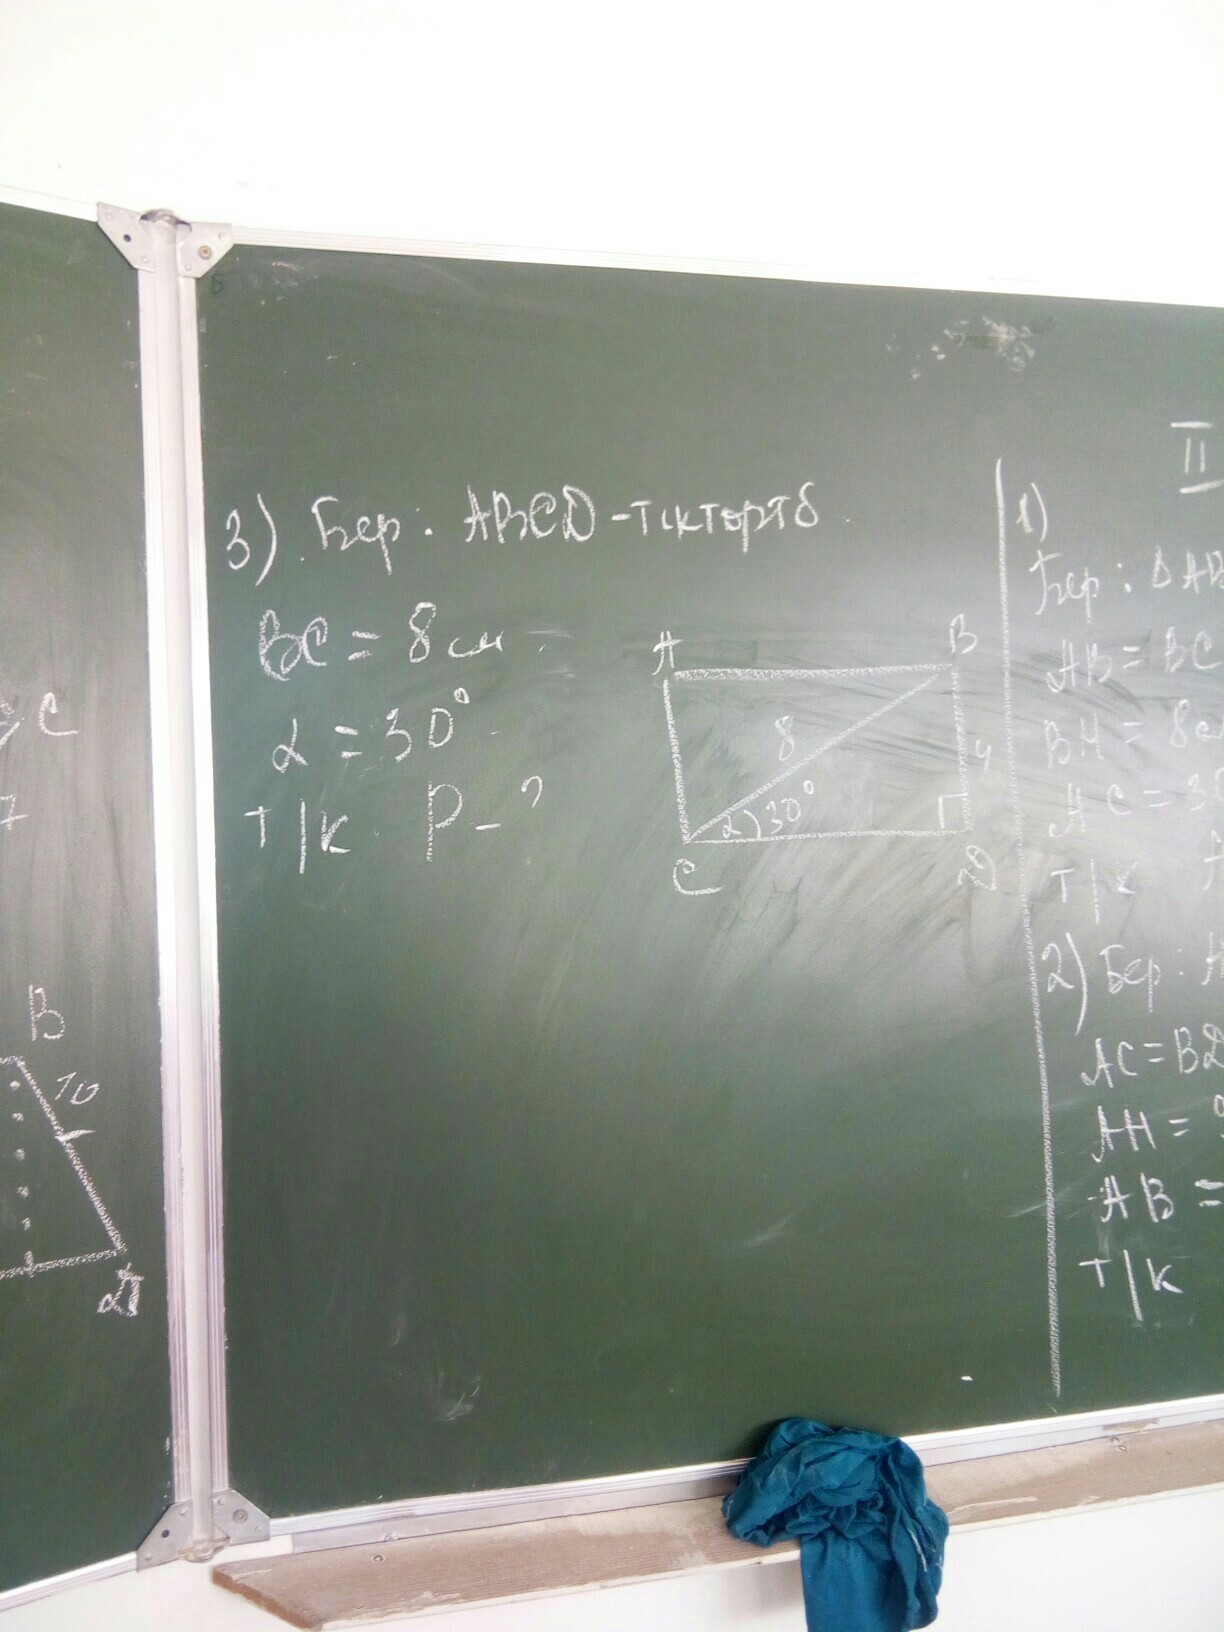 C
7
B
10
D
3) Бер: ABCD-тіктөртб
BC = 8 см
α = 30°
т/к P-?
A
B
8
4
α) 30°
C
D
II
1)
Бер: Δ AB
AB = BC
BH = 8см
AC = 3
т/к
2) Бер: A
AC = BD
AH =
AB =
т/к